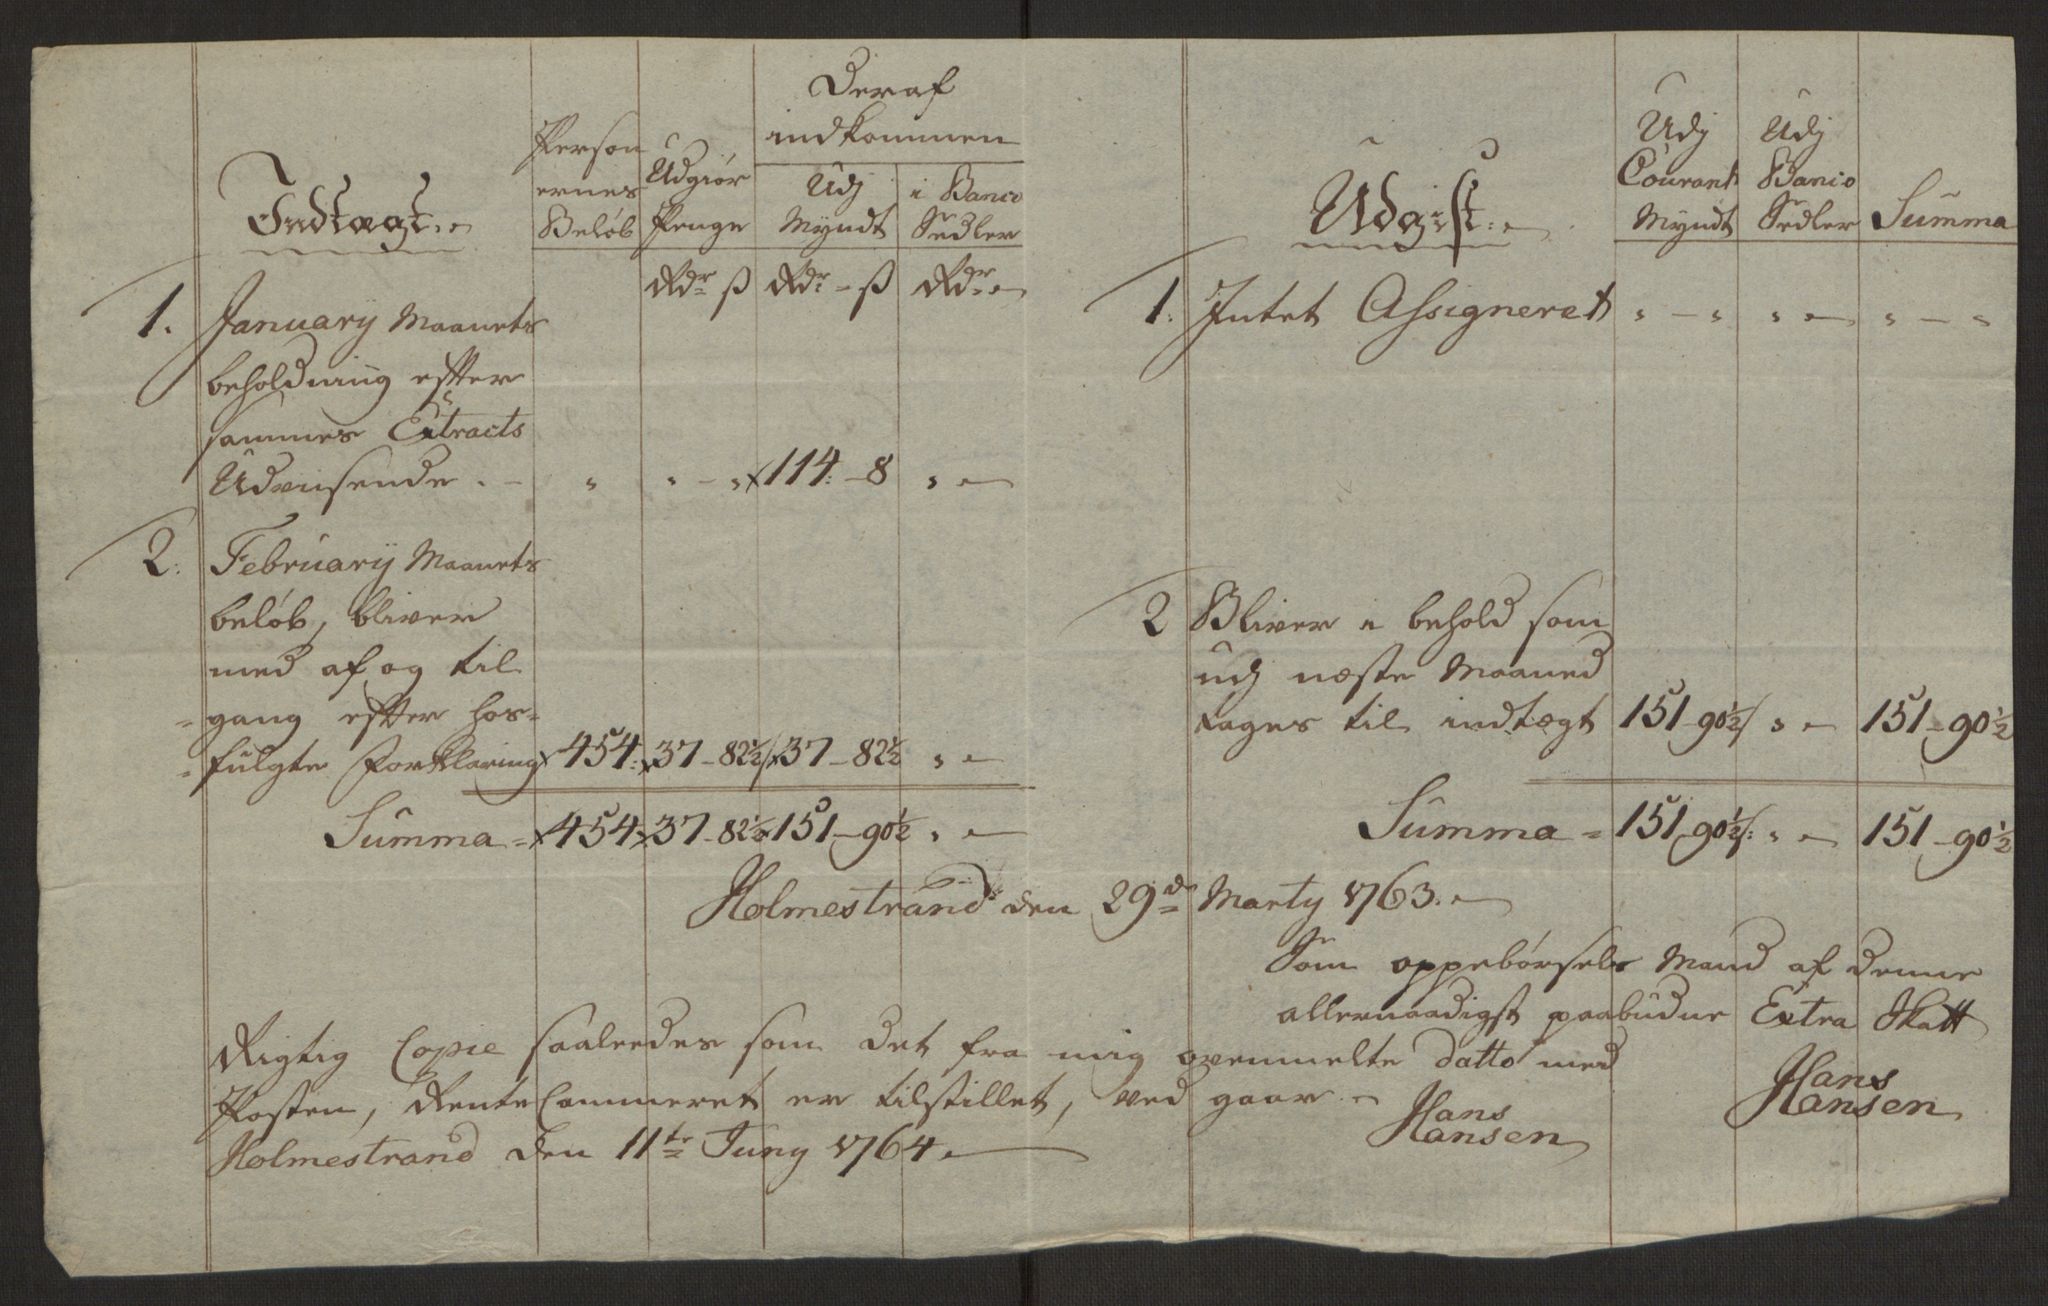 Indtægt
Person
ernes
Beløb
Udgiør
Penge
Deraf
indkommen
Udj
Myndt
i Banco
Sedler
Rdr ß Rdr - ß Rdr
1. January Maanets
beholdning effter
sammes Extracts
Udviisende . - " " - " 114: - 8 " -
2. February Maanets
beløb, bliver
med af og til
= gang effter hos=
= fulgte Forklaring 454: 37 - 82½ 37 - 82½ " -
Summa = 454 37 - 82½ 151 - 90½ " -
Udgift
Udj
Courant
Myndt
Udj
Banco
Sedler
Summa
1. Intet Assigneret " - " " - " - "
2 Bliver i behold som
udj næste Maaned
tages til indtægt 151 - 90½ " - 151 - 90½
Summa = 151 - 90½ " - 151 - 90½
Holmestrand den 29d Marty 1763.
Som oppebørsels Mand af denne
allernaadigst paabudne Extra Skatt
Hans
Hansen
Rigtig Copie saaledes som det fra mig ovenmelte datto med
Posten, RenteCammeret er tilstillet, ved gaar
Hans
Hansen
Holmestrand den 11te Juny 1764